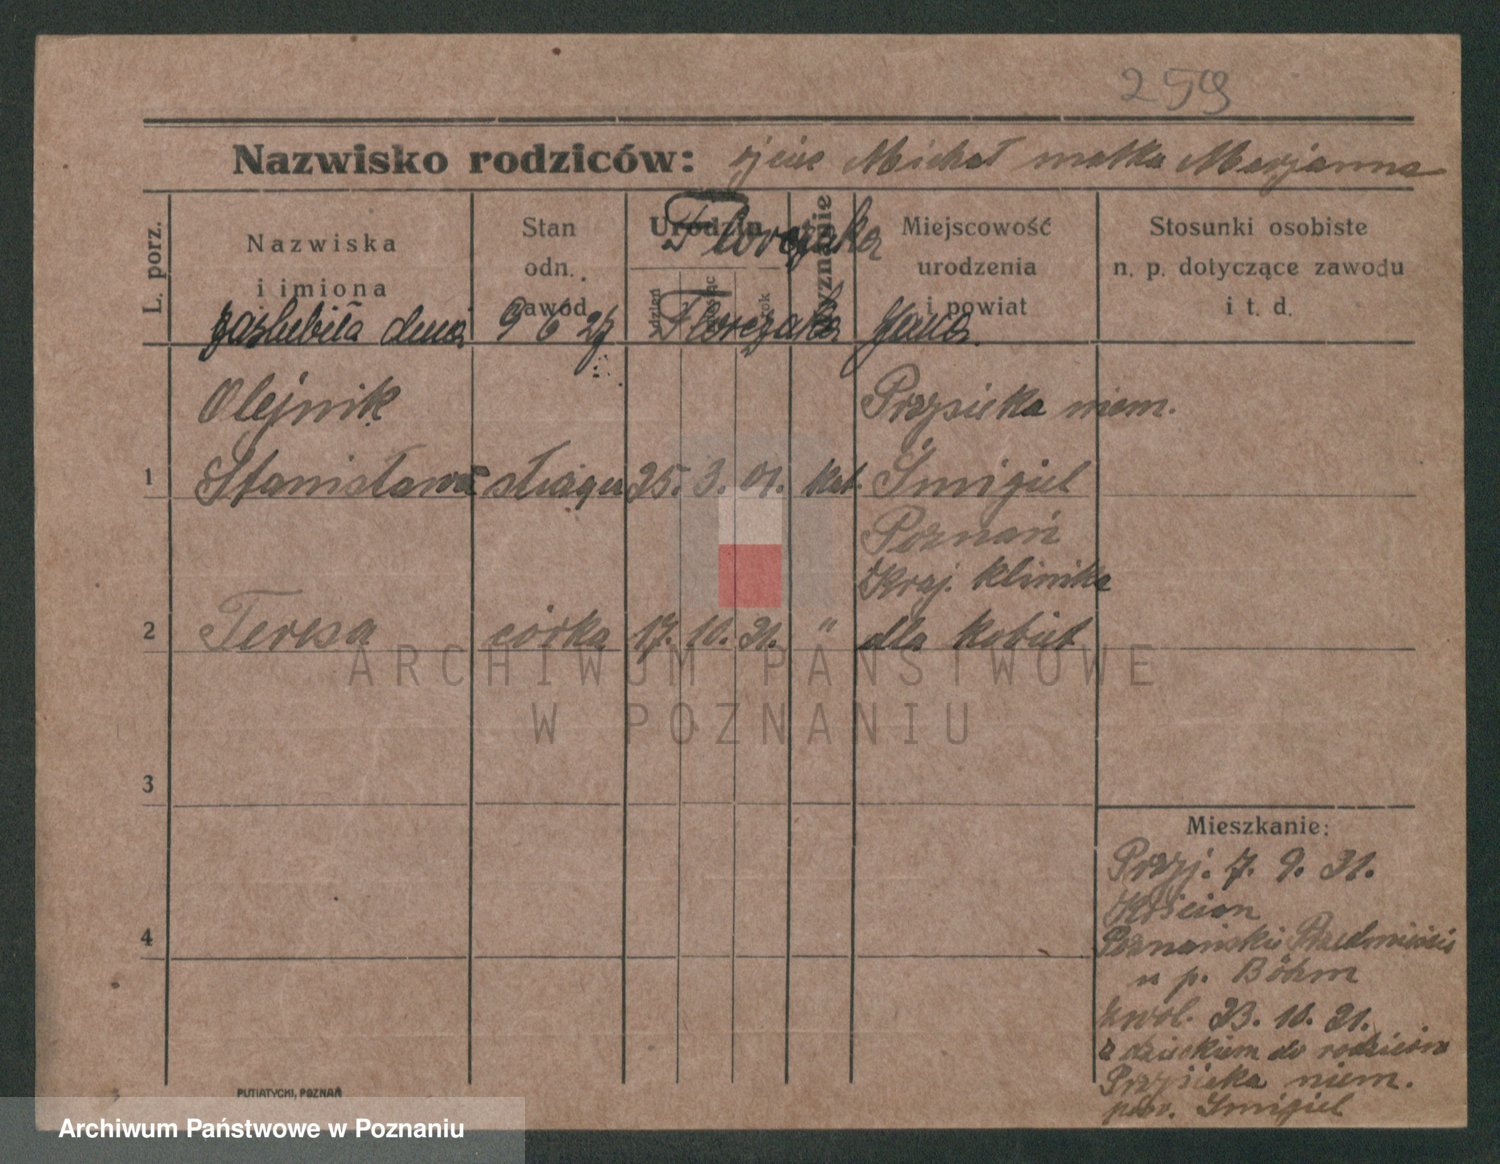 259
Nazwisko rodziców: ojciec Michał matka Marjanna
L. porz.
Nazwiska
i imiona
Stan
odn.
zawód
Urodzin
dzień
miesiąc
rok
Wyznanie
Miejscowość
urodzenia
i powiat
Stosunki osobiste
n. p. dotyczące zawodu
i t. d.
Florczaka
zaślubiła dnia 9 6 24 Florczaka Jana
Olejnik Przysieka niem.
1 Stanisława służąca 25. 3. 01. kat. Śmigiel
Poznań
Kraj. klinika
2 Teresa córka 17. 10. 21. " dla kobiet
3
4
Mieszkanie:
Przyj. 7. 9. 21.
Kościan
Poznańskie Przedmieście
u p. Böhm
zwol. 23. 10. 21.
z dzieckiem do rodziców
Przysieka niem.
pow. Śmigiel
PUTIATYCKI, POZNAŃ
ARCHIWUM PAŃSTWOWE
W POZNANIU
Archiwum Państwowe w Poznaniu